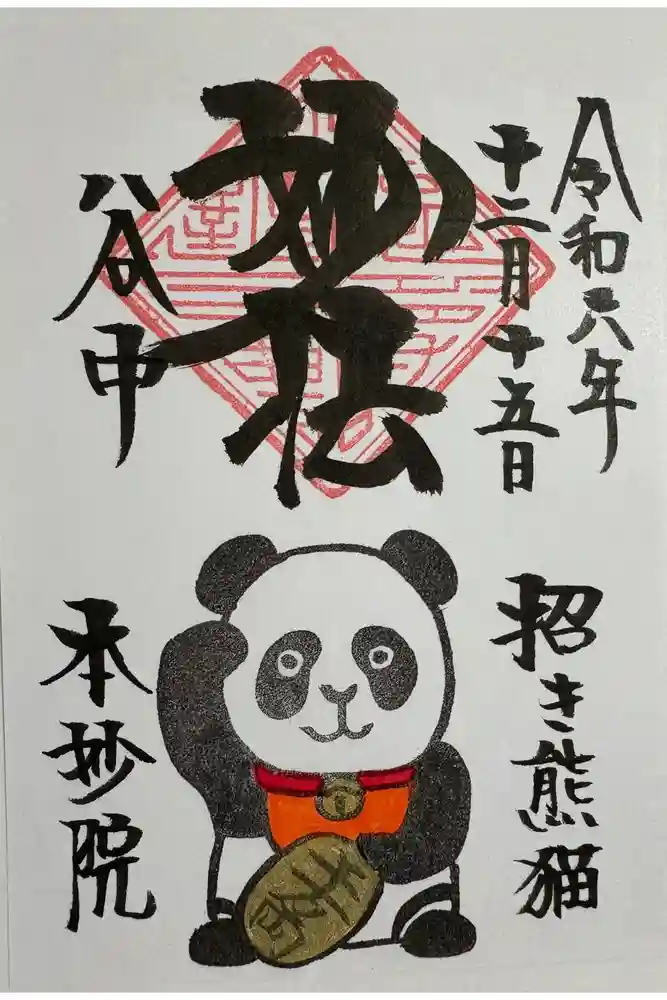 令和六年
十二月十五日
妙法
谷中
招き熊猫
本妙院